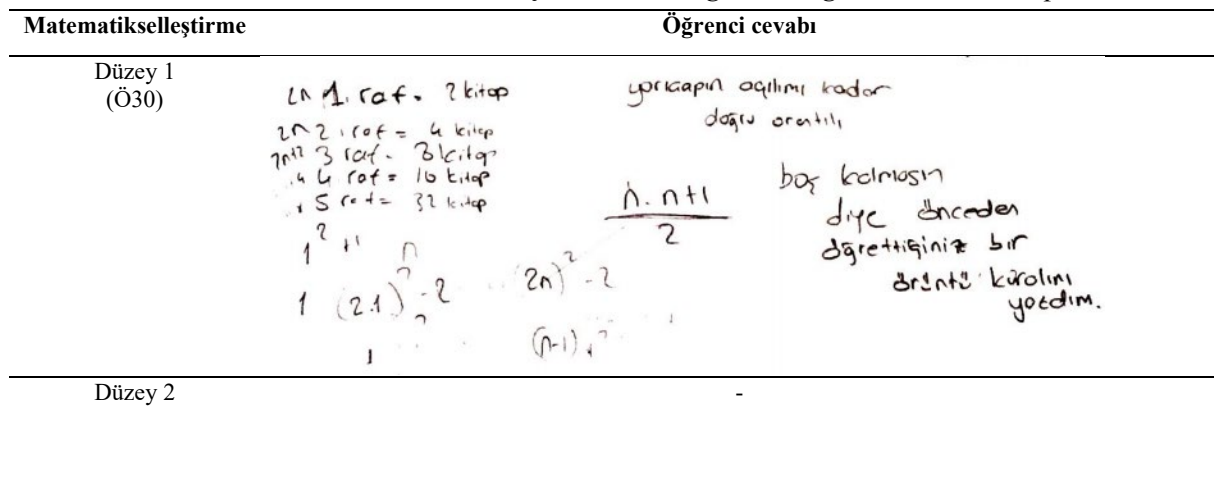 Matematikselleştirme Öğrenci cevabı
Düzey 1
(Ö30)
2n 1. raf = 2 kitap
2n 2. raf = 4 kitap
3 raf = 8 kitap
4 raf = 16 kitap
5 raf = 32 kitap
1² +1 n
1 (2.1)² - 2 (2n)² - 2
(n-1)
yarıçapın açılımı kadar
doğru orantılı
n. n+1
2
boş kalmasın
diye önceden
öğrettiğiniz bir
örüntü kuralını
yazdım.
Düzey 2 -